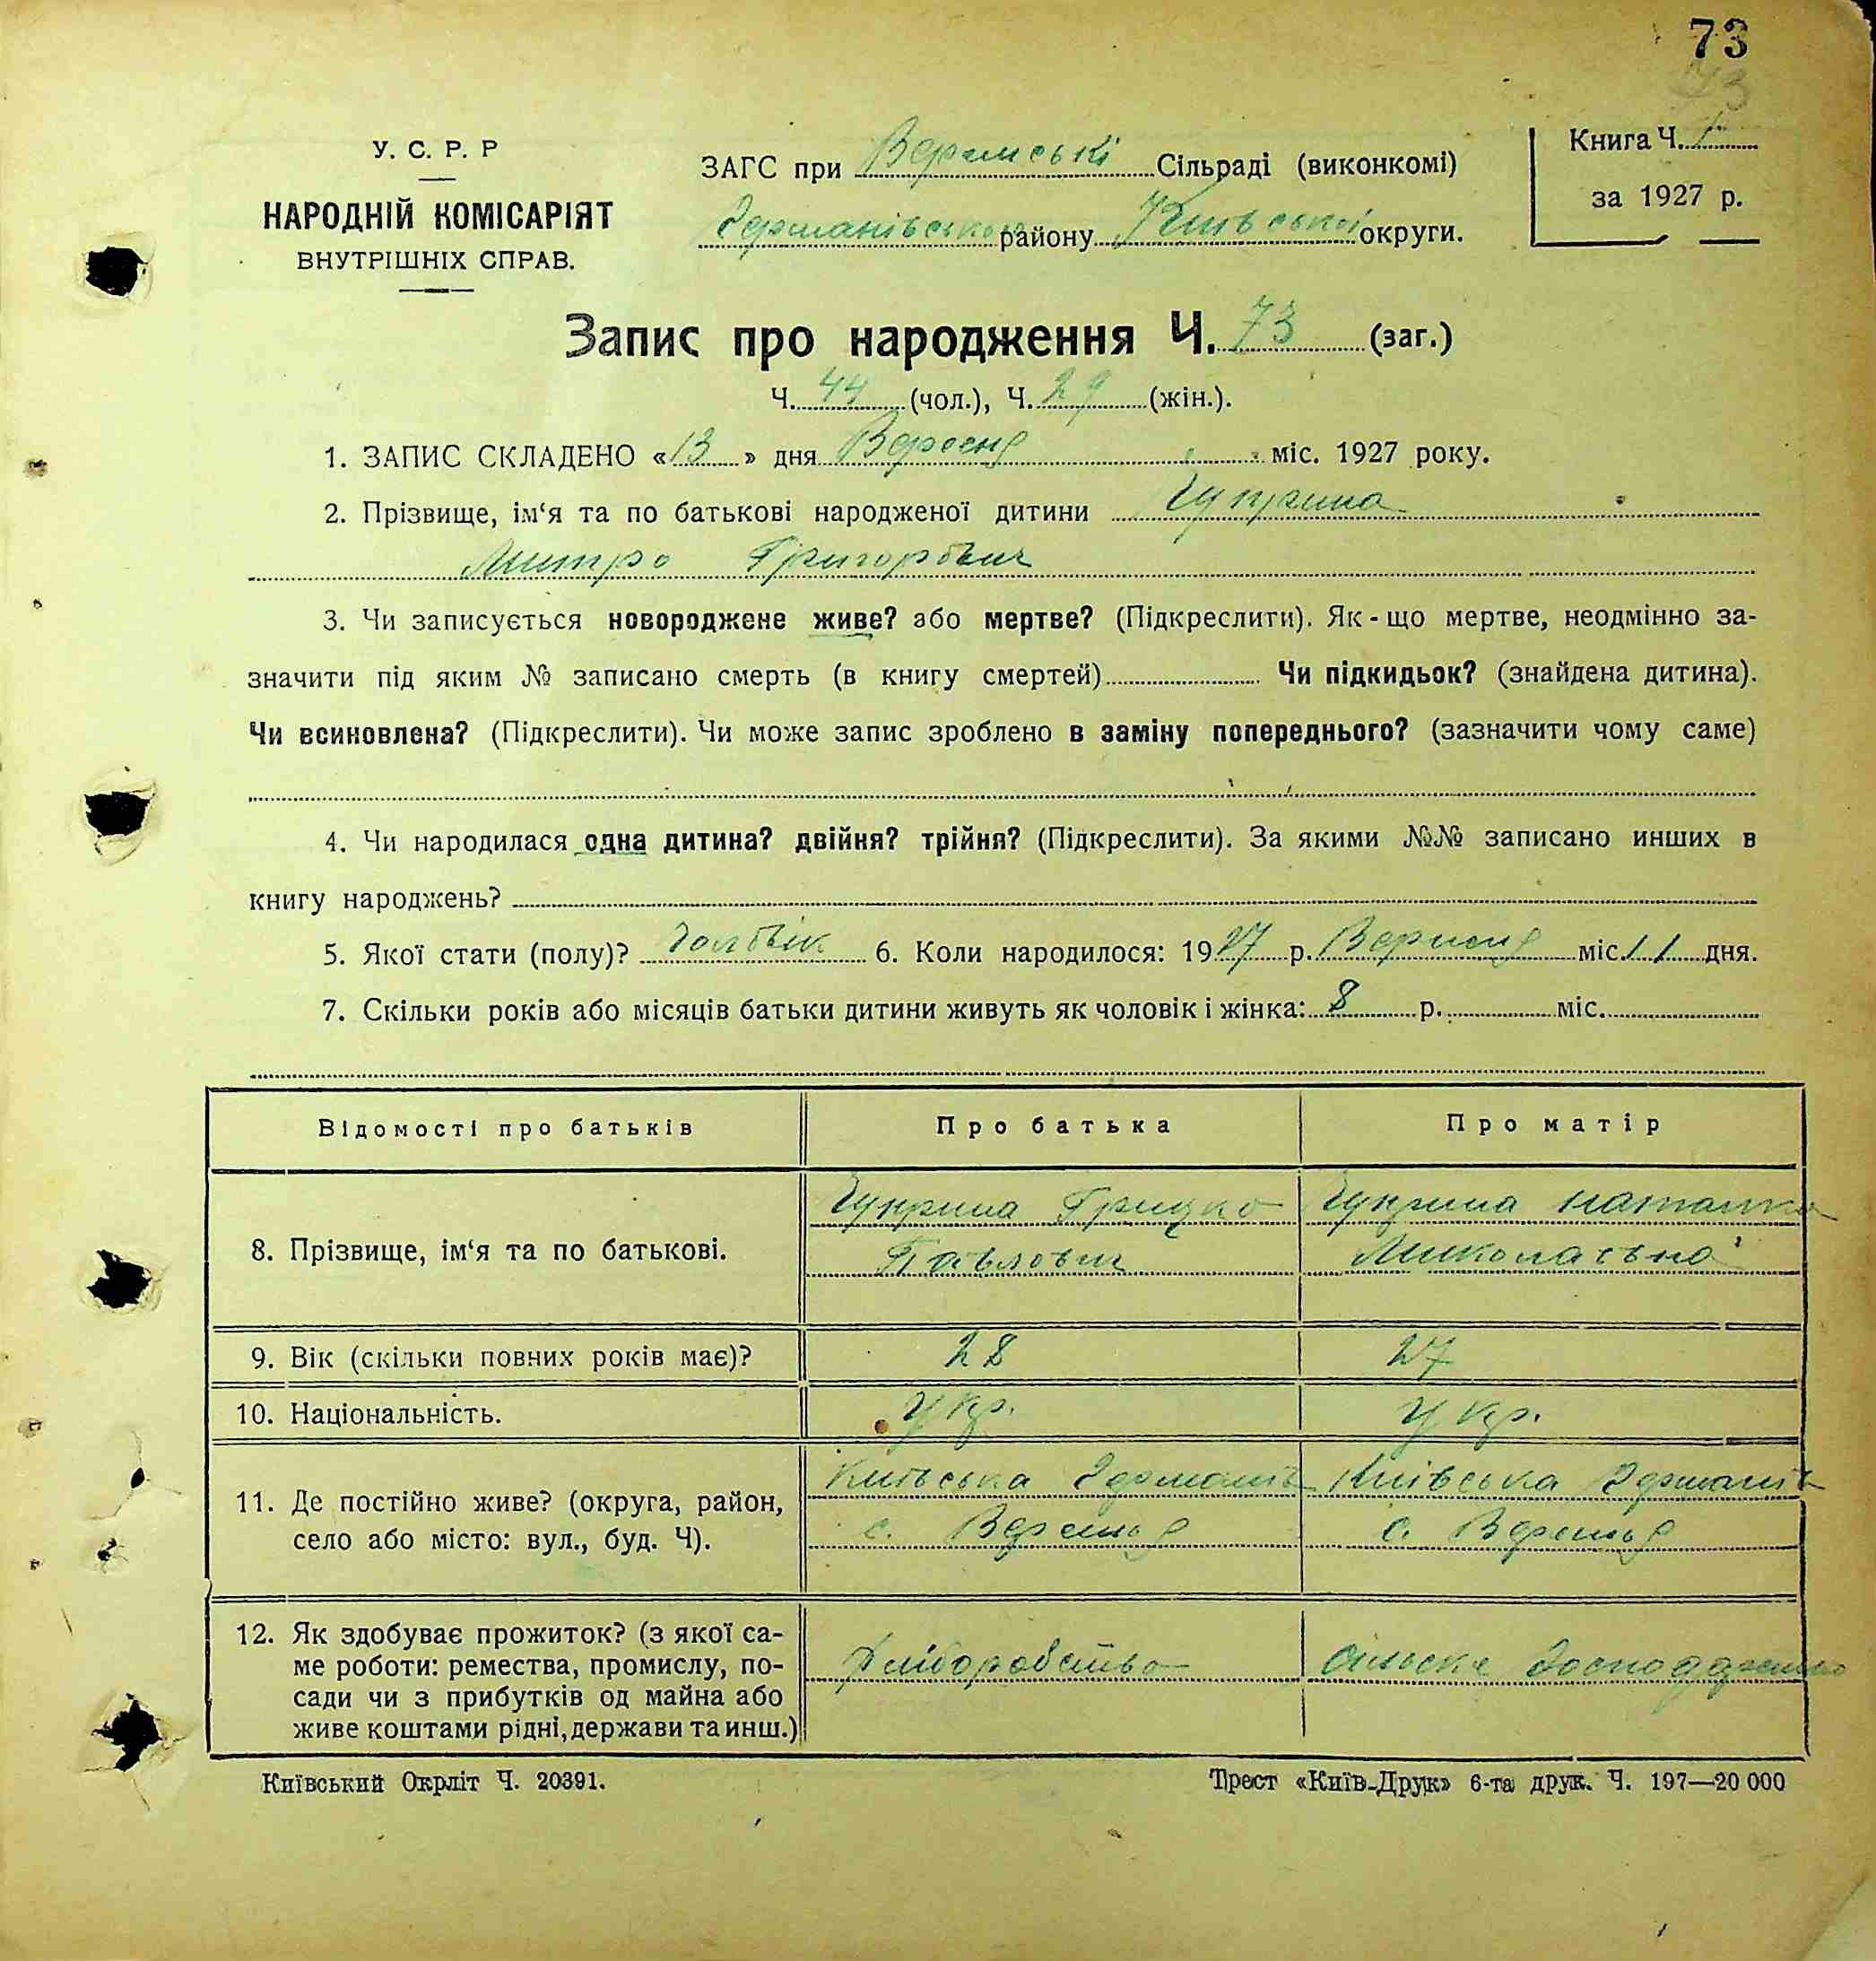 73
73
У. С. Р. Р
НАРОДНІЙ КОМІСАРІЯТ
ВНУТРІШНІХ СПРАВ.
ЗАГС при Веремській Сільраді (виконкомі)
Германівського району Київської округи.
Книга Ч. 1
за 1927 р.
Запис про народження Ч. 73 (заг.)
Ч. 44 (чол.), Ч. 29 (жін.).
1. ЗАПИС СКЛАДЕНО «13» дня Вересня міс. 1927 року.
2. Прізвище, ім‘я та по батькові народженої дитини Чуприна
Митро Григорович
3. Чи записується новороджене живе? або мертве? (Підкреслити). Як-що мертве, неодмінно за-
значити під яким № записано смерть (в книгу смертей) Чи підкидьок? (знайдена дитина).
Чи всиновлена? (Підкреслити). Чи може запис зроблено в заміну попереднього? (зазначити чому саме)
4. Чи народилася одна дитина? двійня? трійня? (Підкреслити). За якими №№ записано инших в
книгу народжень?
5. Якої стати (полу)? 6. Коли народилося: 1927 р. Вересня міс. 11 дня.
7. Скільки років або місяців батьки дитини живуть як чоловік і жінка: 8 р. міс.
Відомості про батьків Про батька Про матір
8. Прізвище, ім‘я та по батькові.
Чуприна Грицко Павлович
Чуприна Наталка Миколаївна
9. Вік (скільки повних років має)? 28 27
10. Національність. Укр. Укр.
11. Де постійно живе? (округа, район,
село або місто: вул., буд. Ч).
Київська Германів
с. Веремья
Київська Германів
с. Веремья
12. Як здобуває прожиток? (з якої са-
ме роботи: ремества, промислу, по-
сади чи з прибутків од майна або
живе коштами рідні, держави та инш.)
Хліборобство
Сільске Господарство
Київський Окрліт Ч. 20391.
Трест «Київ-Друк» 6-та друк. Ч. 197—20 000